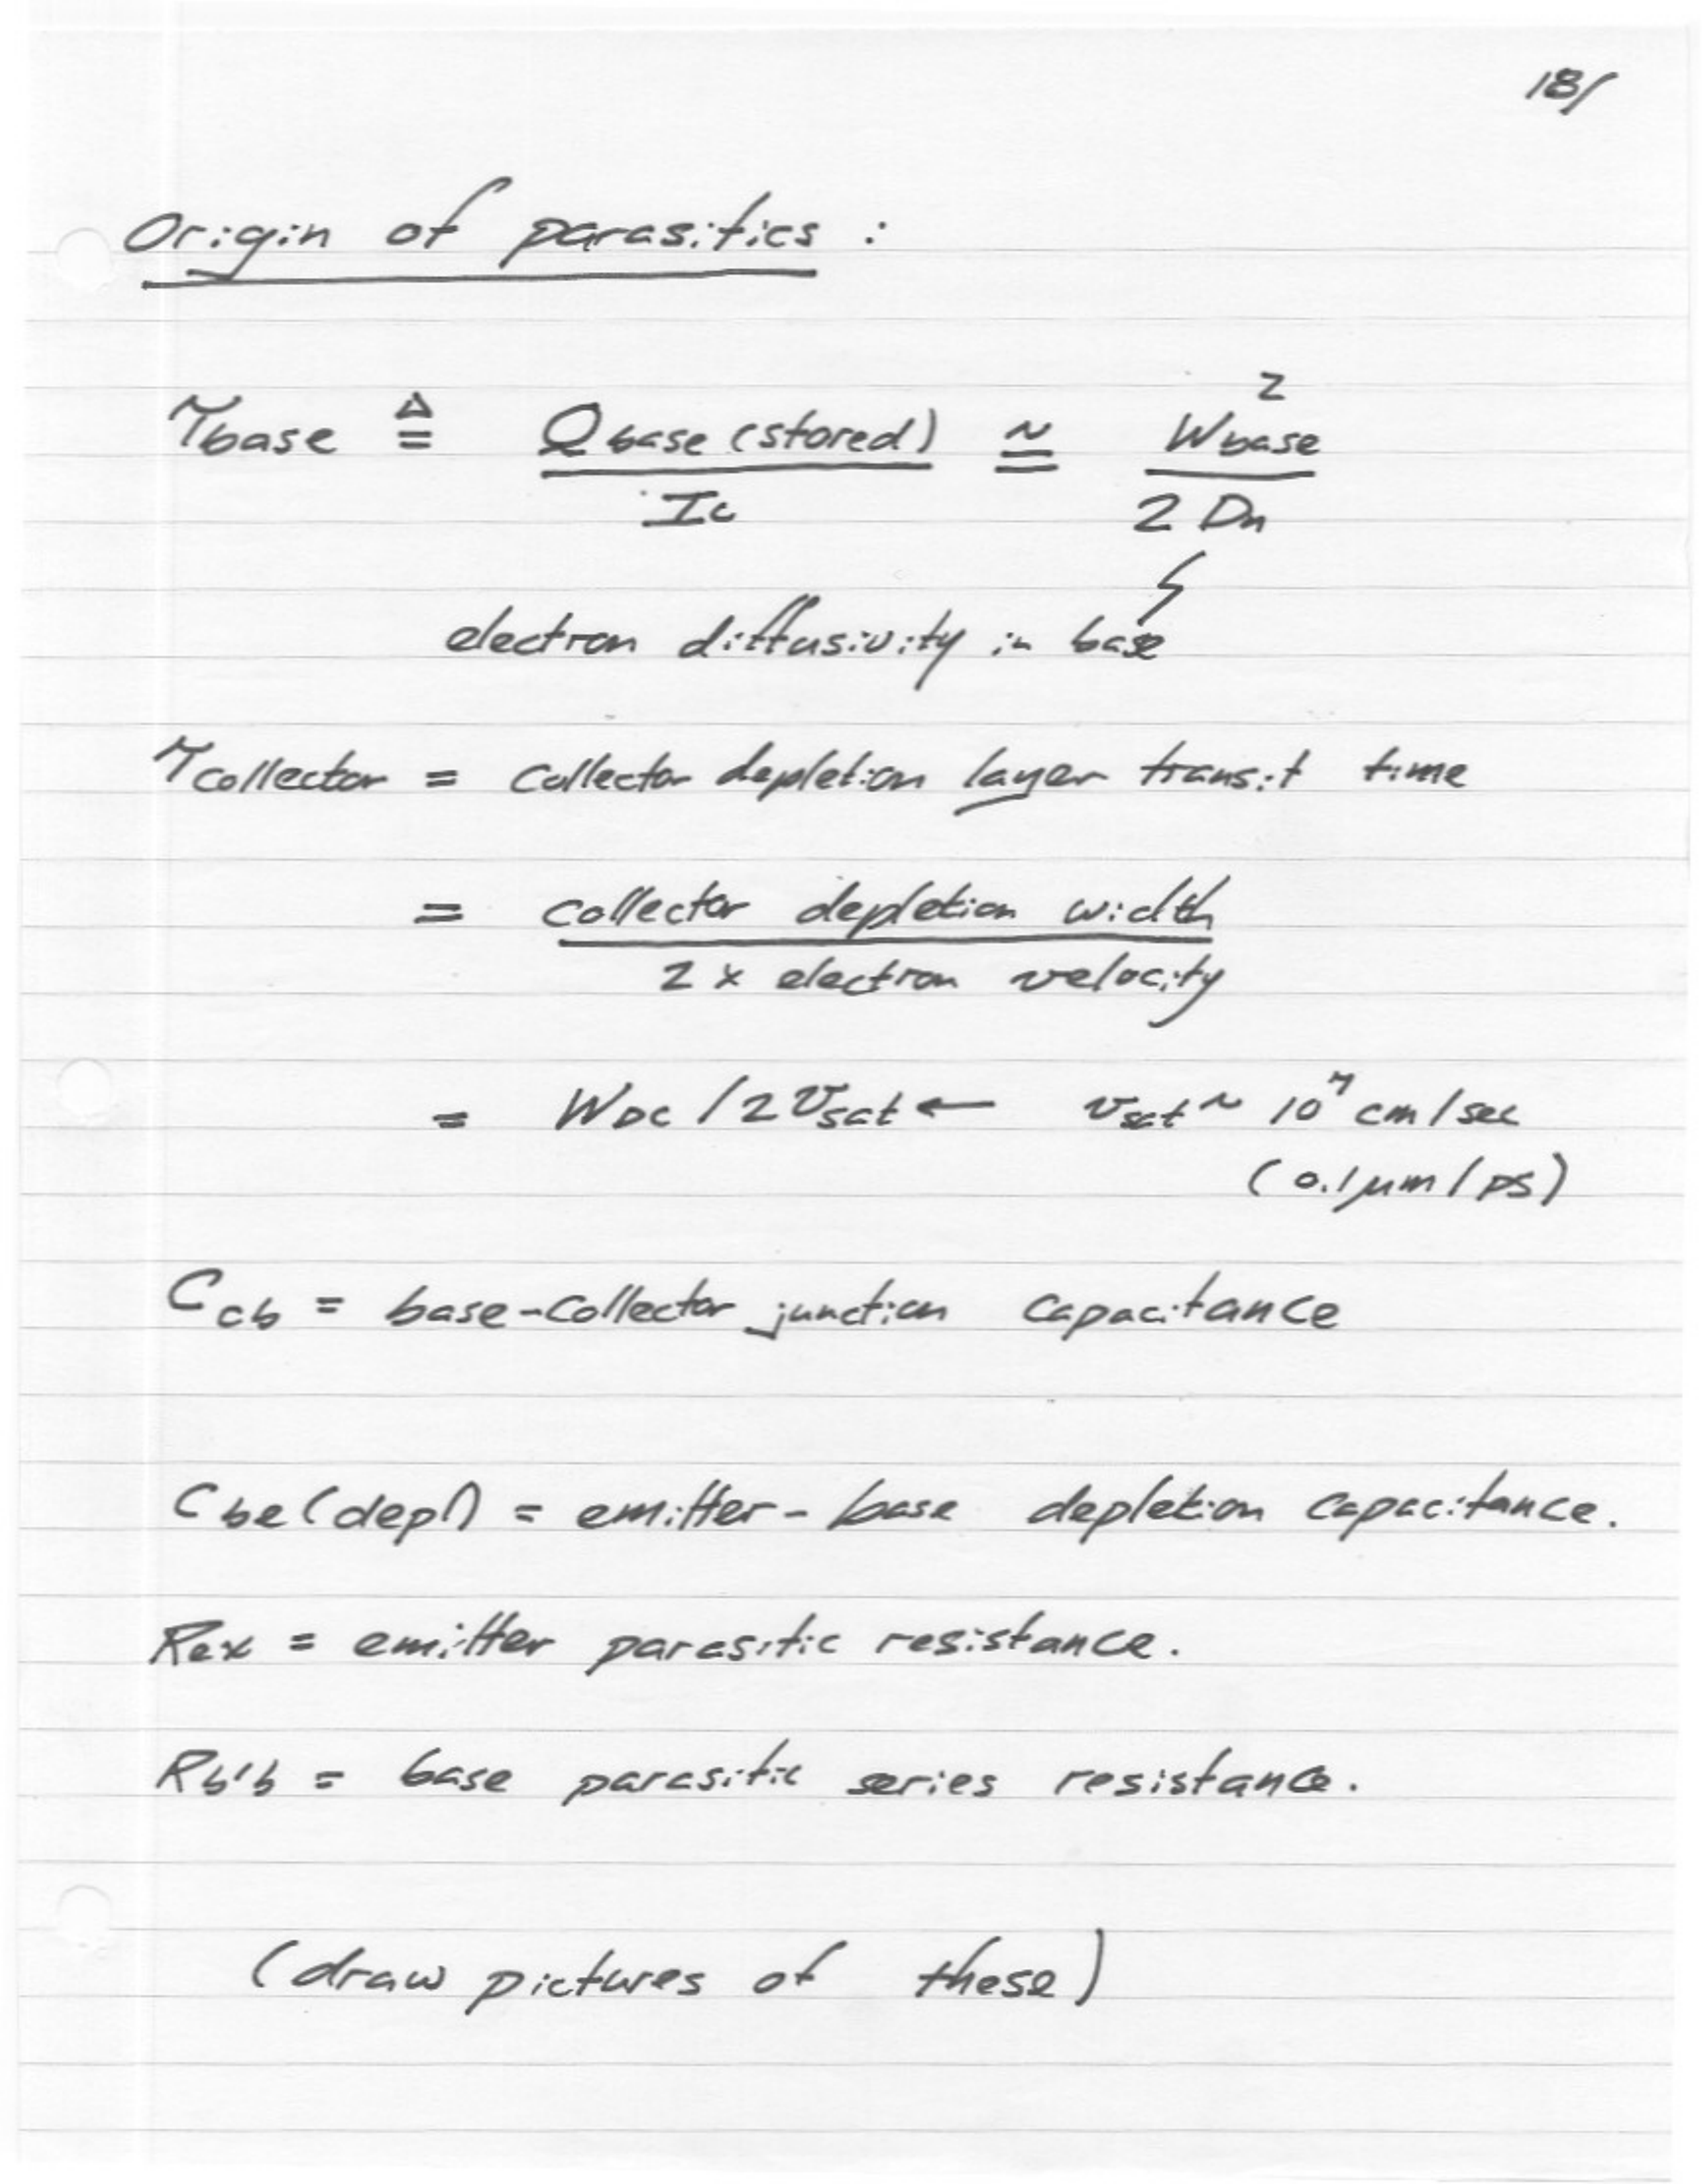 18/
Origin of parasitics :
τbase ≜ Qbase (stored) / Ic ≅ Wbase² / 2 Dn
electron diffusivity in base
τcollector = collector depletion layer transit time
= collector depletion width / 2 x electron velocity
= WDC / 2 vsat ← vsat ~ 10⁷ cm/sec
(0.1 μm / ps)
Ccb = base-collector junction capacitance
Cbe (depl) = emitter - base depletion capacitance.
Rex = emitter parasitic resistance.
Rb'b = base parasitic series resistance.
(draw pictures of these)